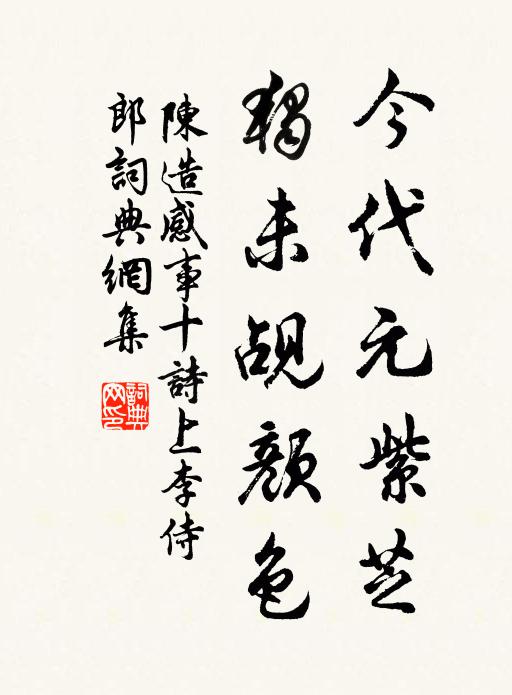 今代元紫芝
獨未覘顏色
陳造感事十詩上李侍
郎詞典網集
詞典網印